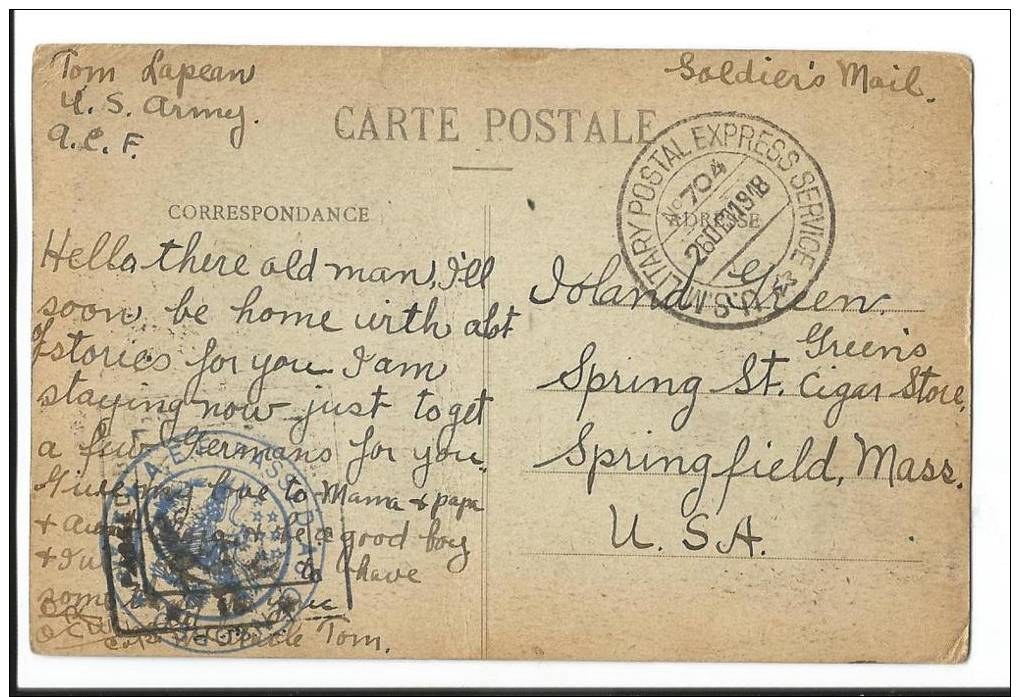 Tom Lapean
U. S. Army.
A. E. F.
Soldier's Mail.
CARTE POSTALE
U.S. MILITARY POSTAL EXPRESS SERVICE
No 704
26 DEC 1918
CORRESPONDANCE
ADRESSE
Hello there old man, I'll
soon be home with alot
of stories for you. I am
staying now just to get
a few Germans for you.
Give my love to Mama & papa
& be a good boy
& to have
some
Uncle Tom.
Green
Green's
Spring St. Cigar Store,
Springfield, Mass.
U. S. A.